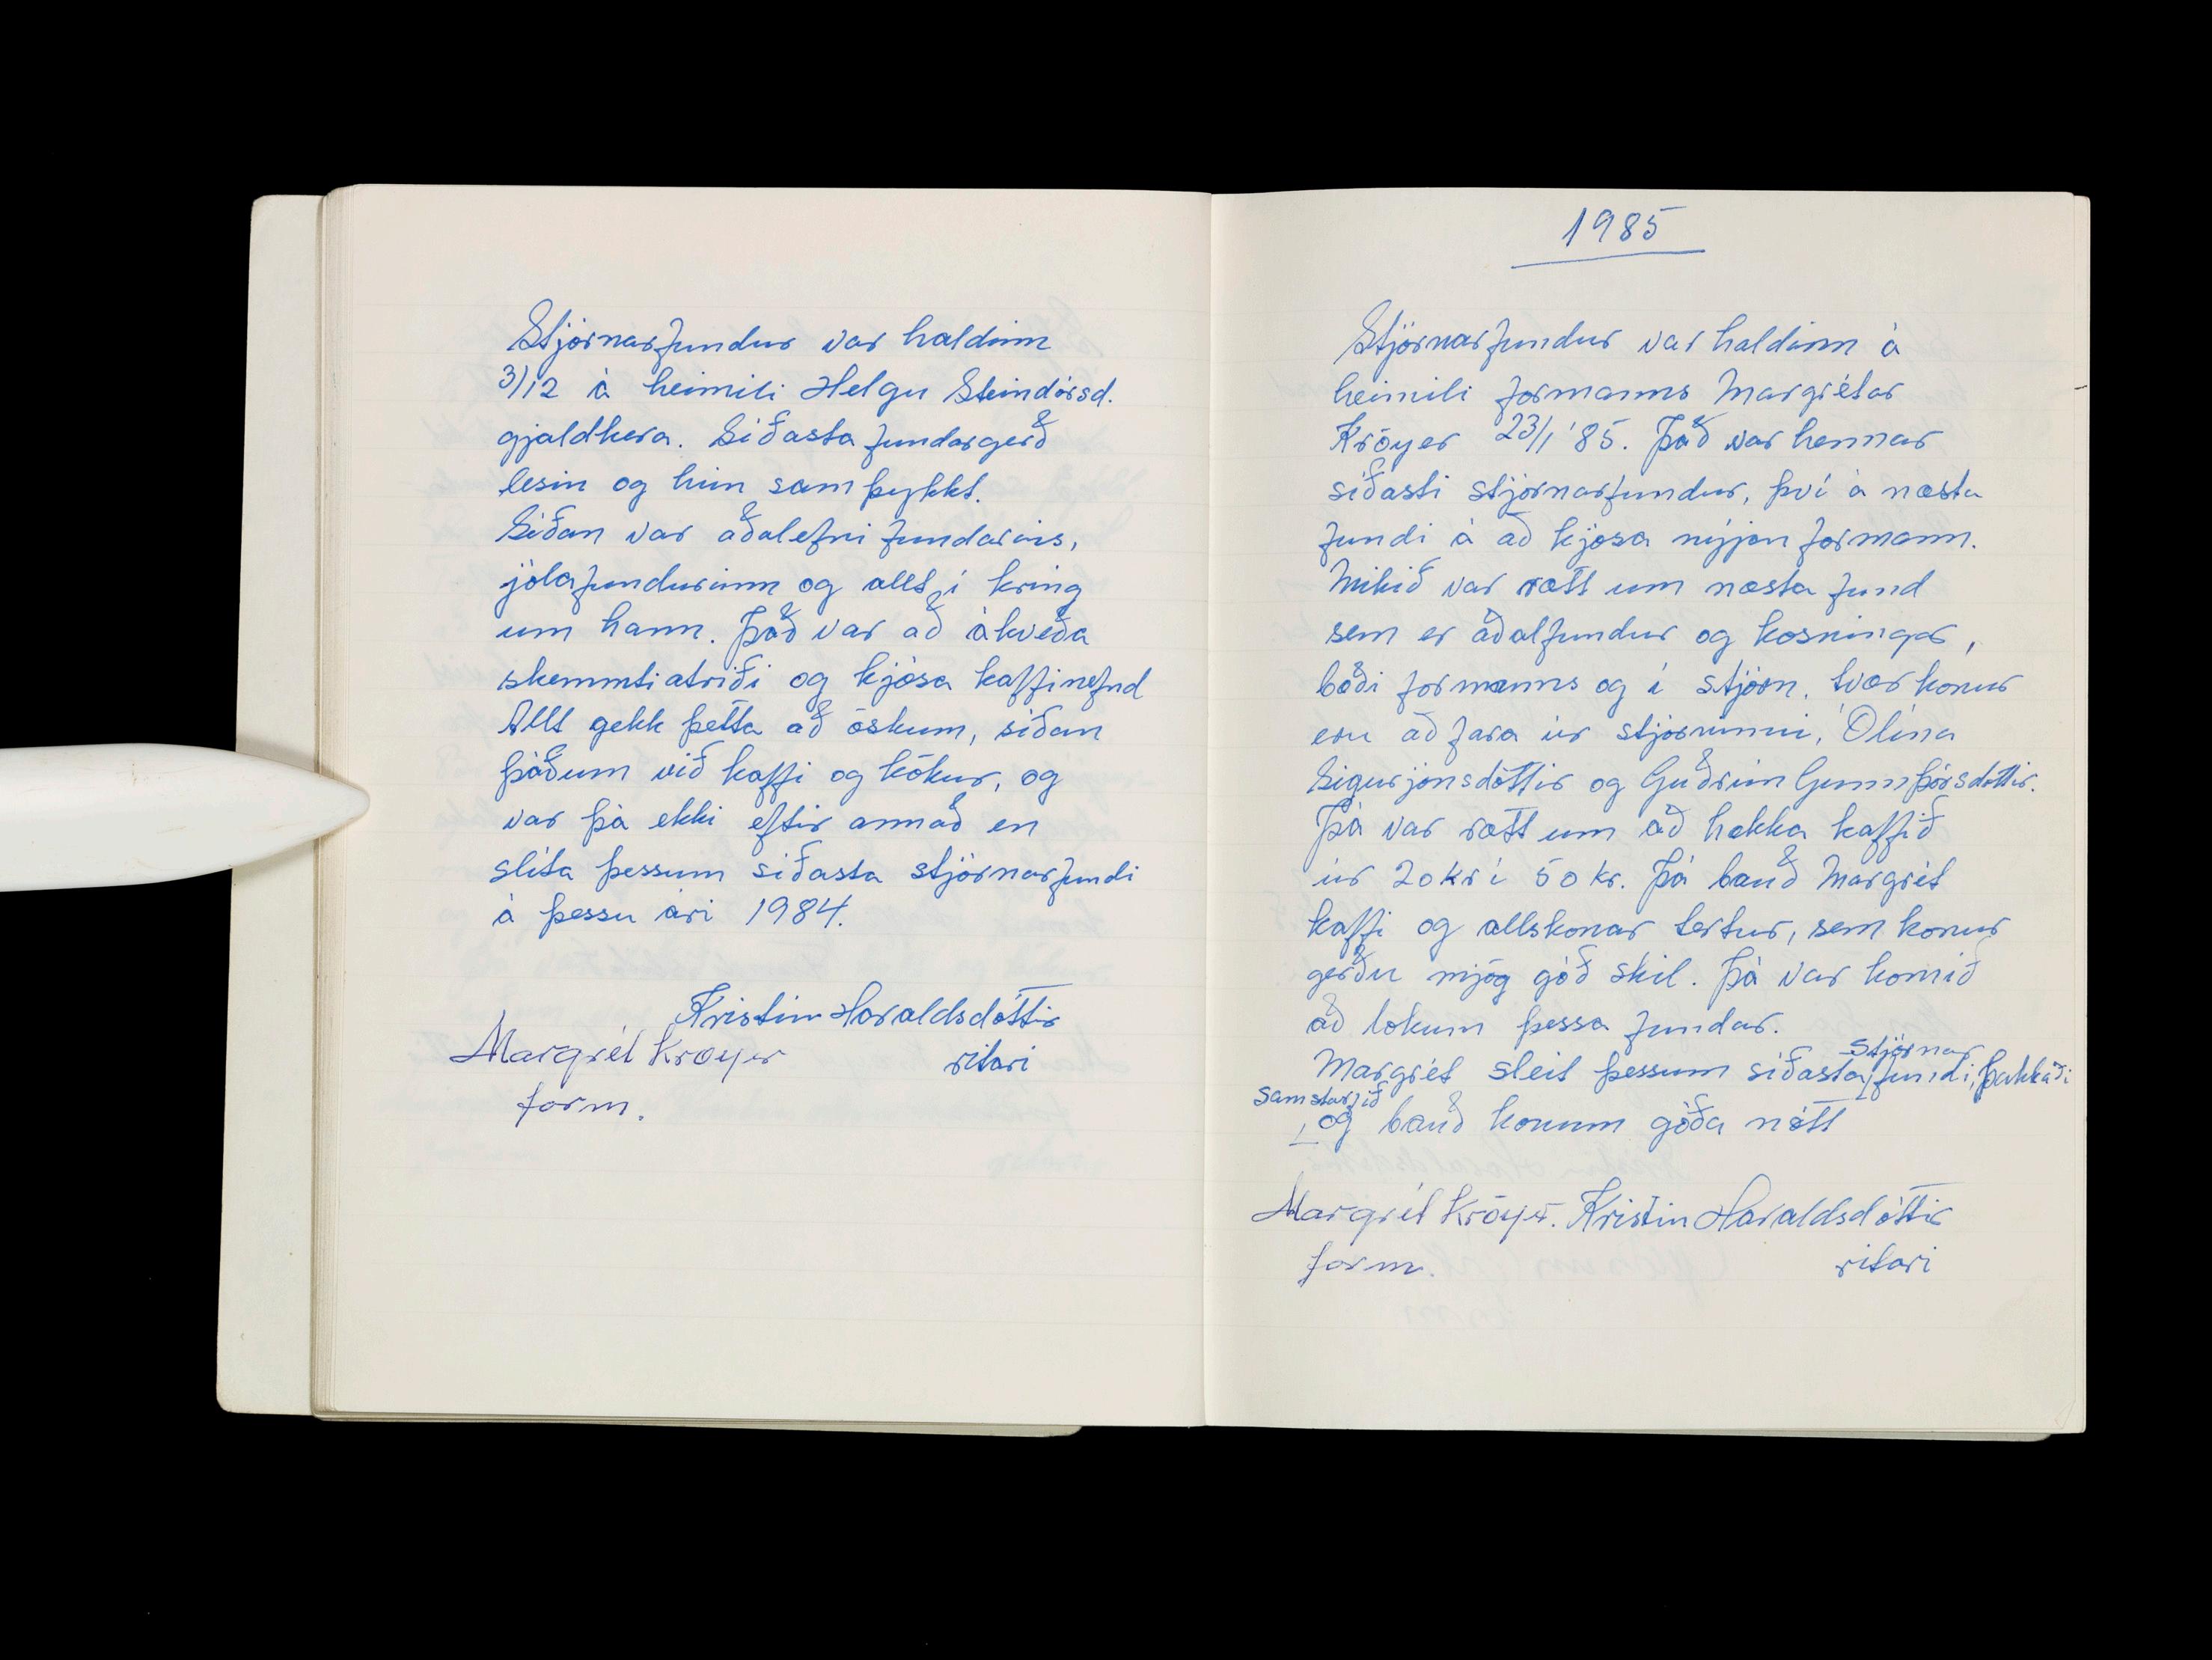 Stjórnarfundur var haldinn
3/12 á heimili Helgu Steindórsd.
gjaldkera. Síðasta fundargerð
lesin og hún samþykkt.
Síðan var aðalefni fundarins,
jólafundurinn og allt í kring
um hann. Það var að ákveða
skemmtiatriði og kjósa kaffinefnd
Allt gekk þetta að óskum, síðan
þáðum við kaffi og kökur, og
var þá ekki eftir annað en
slíta þessum síðasta stjórnarfundi
á þessu ári 1984.
Kristín Haraldsdóttir
ritari
Margrét Kröyer
form.
1985
Stjórnarfundur var haldinn á
heimili formanns Margrétar
Kröyer 23/1 '85. Það var hennar
síðasti stjórnarfundur, því á næsta
fundi á að kjósa nýjan formann.
Mikið var rætt um næsta fund
sem er aðalfundur og kosningar,
bæði formanns og í stjórn. tvær konur
eru að fara úr stjórninni, Ólína
Sigurjónsdóttir og Guðrún Gunnþórsdóttir.
Þá var rætt um að hækka kaffið
úr 20 kr í 50 kr. Þá bauð Margrét
kaffi og allskonar tertur, sem konur
gerðu mjög góð skil. Þá var komið
að lokum þessa fundar.
Margrét sleit þessum síðasta stjórnarfundi, þakkaði
samstarfið og bauð konum góða nótt
Margrét Kröyer. Kristín Haraldsdóttir
form. ritari